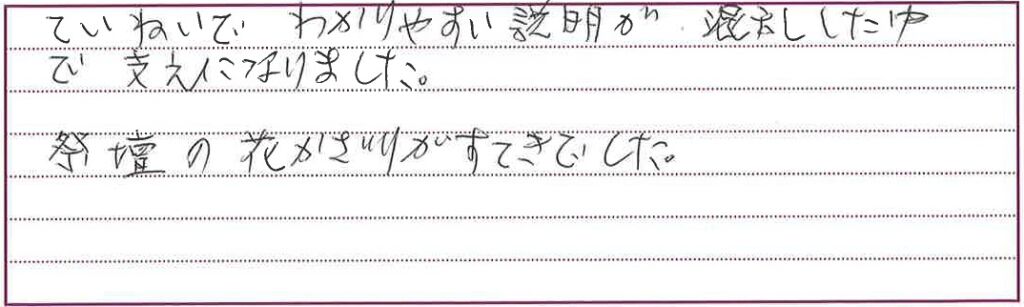 ていねいで わかりやすい説明が 混乱した中
で 支えになりました。
祭壇の花かざりがすてきでした。